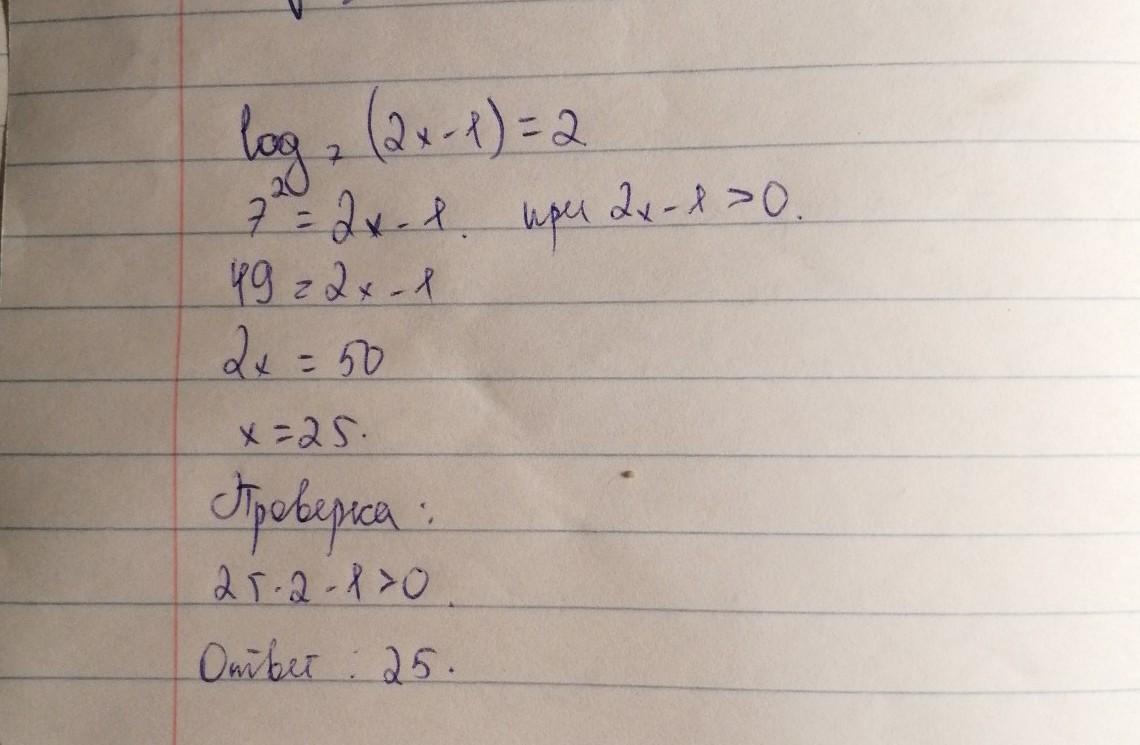 log₇ (2x-1) = 2
7² = 2x-1. при 2x-1>0.
49 = 2x-1
2x = 50
x = 25.
Проверка:
25·2-1>0.
Ответ: 25.